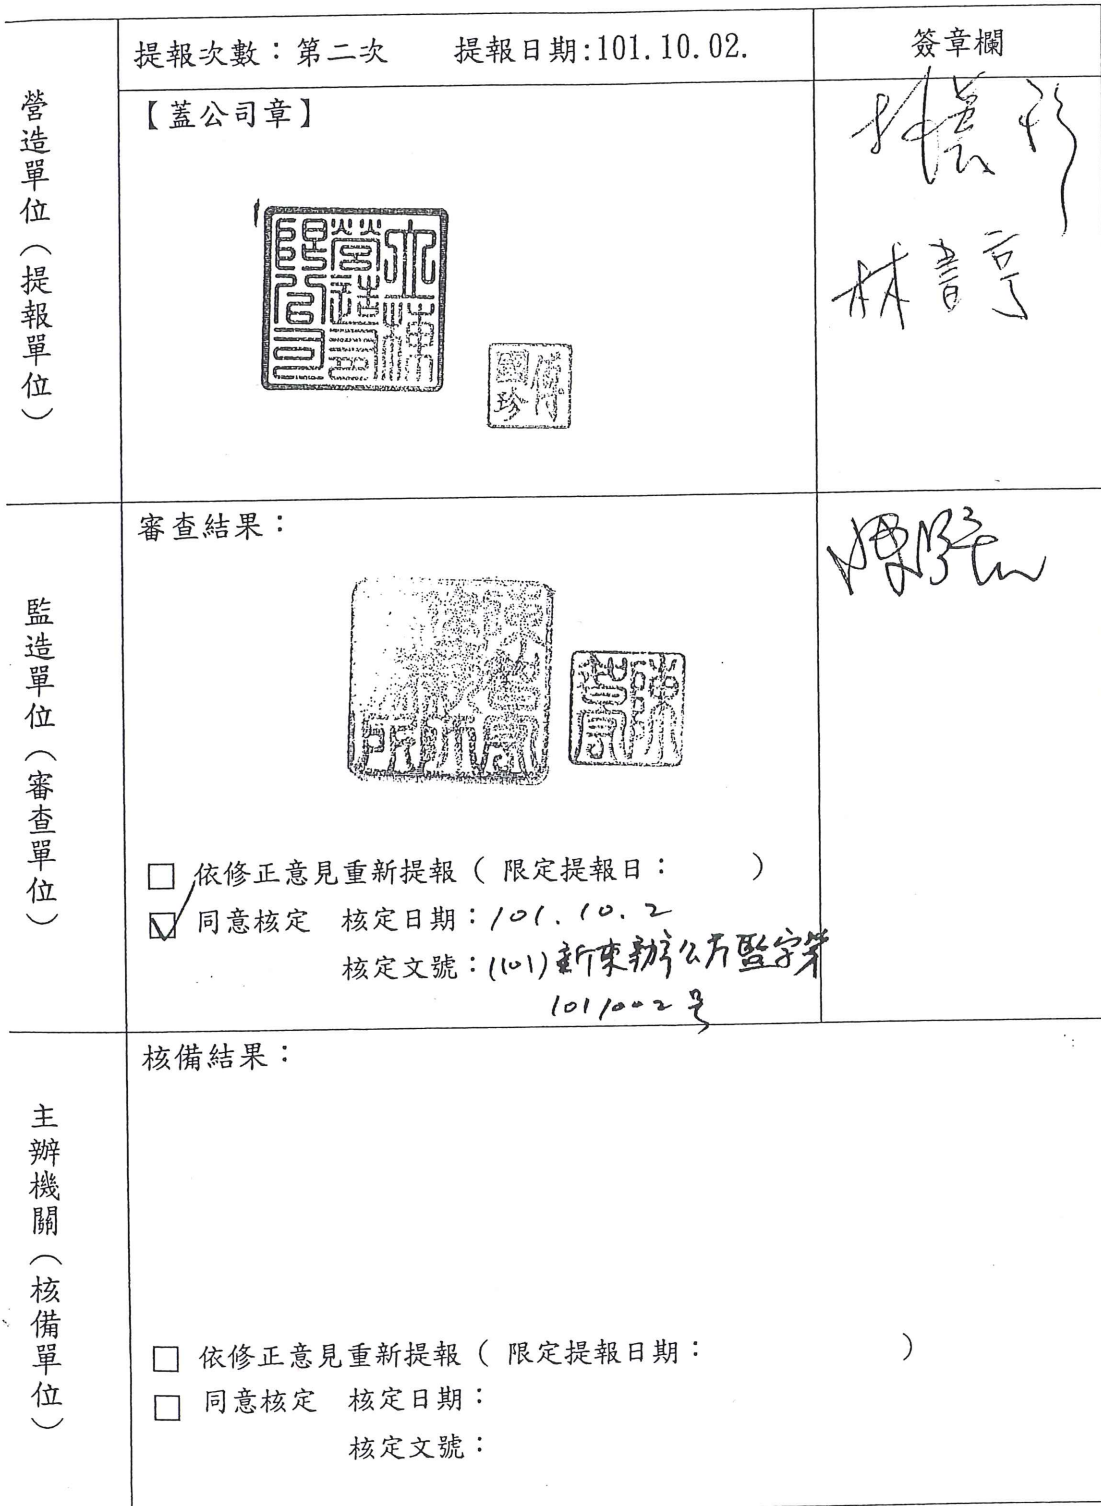 提報次數：第二次　　提報日期:101.10.02.
簽章欄
營造單位（提報單位）
【蓋公司章】
林書亨
傅國珍
監造單位（審查單位）
審查結果：
□ 依修正意見重新提報（ 限定提報日：　　　）
☑ 同意核定　核定日期：101.10.2
核定文號：(101)新東辦公方監字第
1011002号
主辦機關（核備單位）
核備結果：
□ 依修正意見重新提報（ 限定提報日期：　　　　　　）
□ 同意核定　核定日期：
核定文號：